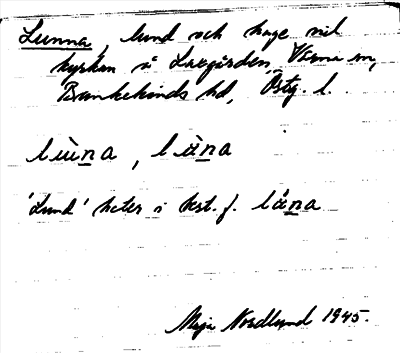 Lunna, lund och hage vid
kyrkan å Lövgården, Värna sn,
Bankekinds hd, Östg. l.
lùna, làna
'Lund' heter i best. f. låna
Maja Nordlund 1945.